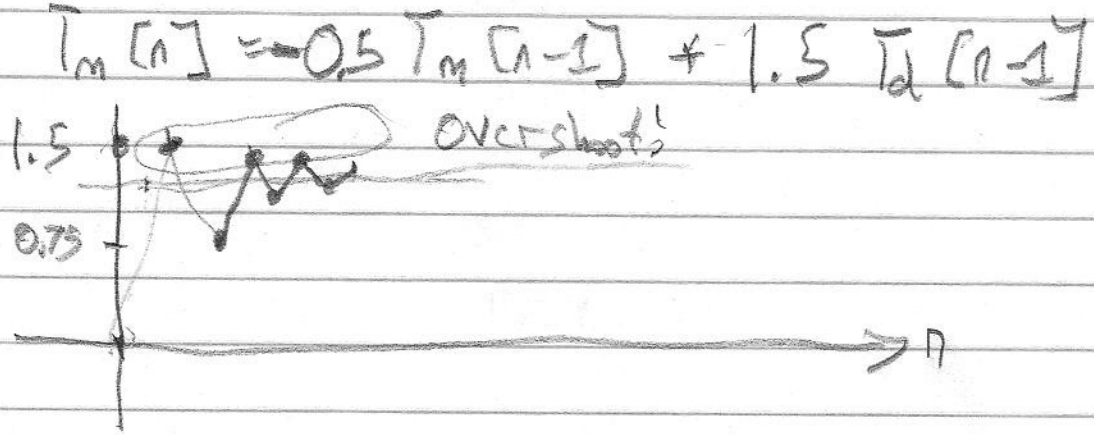 Tm [n] = -0.5 Tm [n-1] + 1.5 Td [n-1]
1.5 Overshoot!
0.75
n